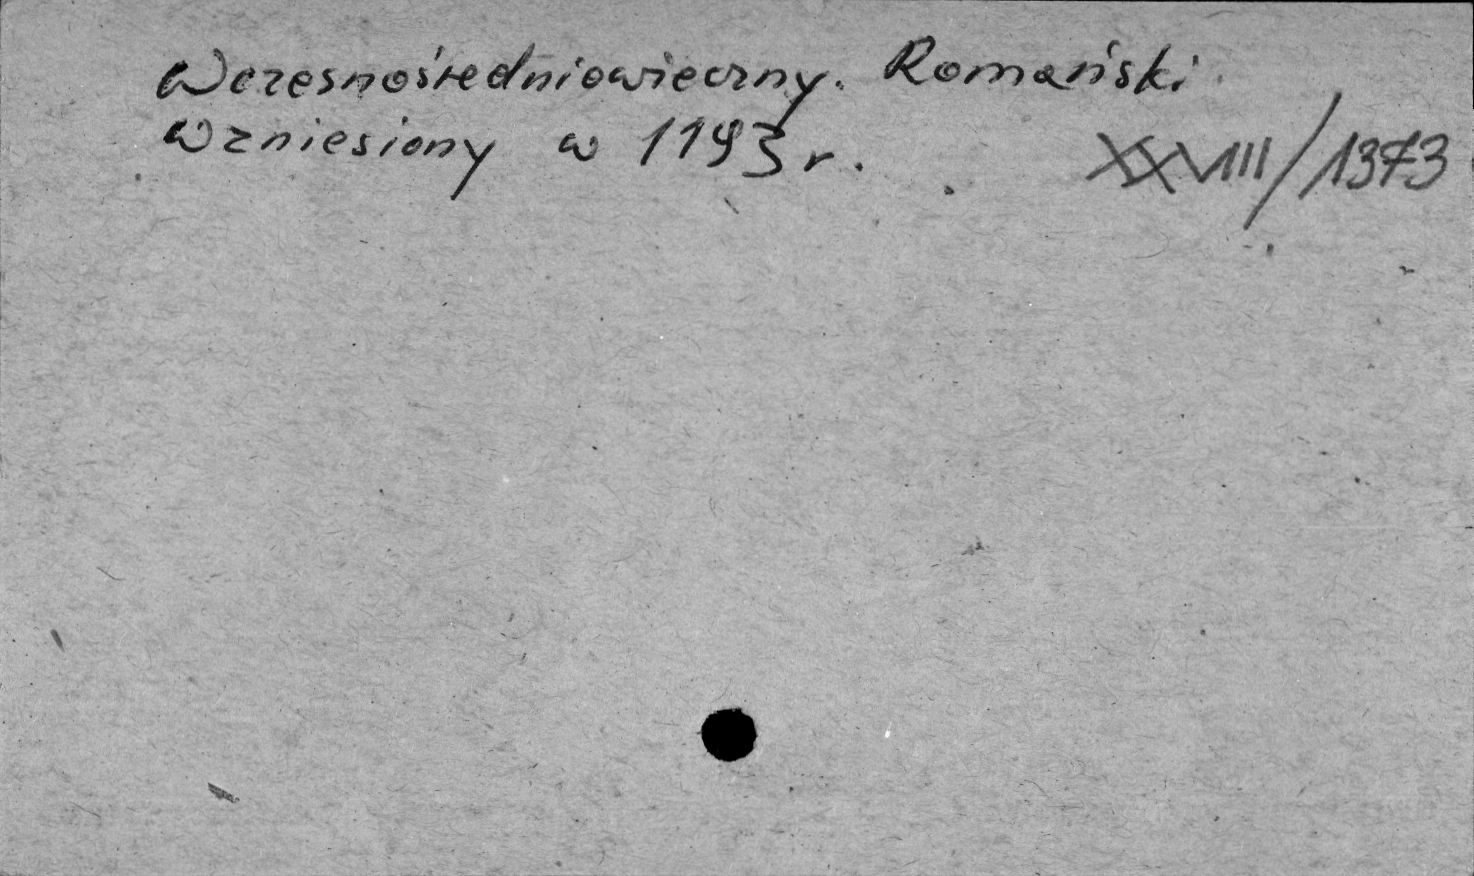 Wczesnośredniowieczny. Romański.
Wzniesiony w 1193 r.
XXVIII/1373